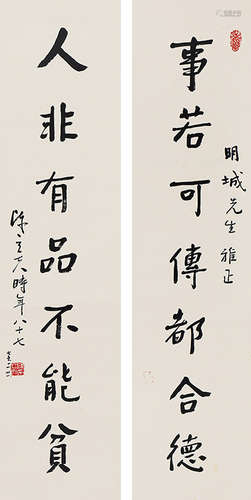 事若可傳都合德
明城先生雅正
人非有品不能貧
陳立夫時年八十七